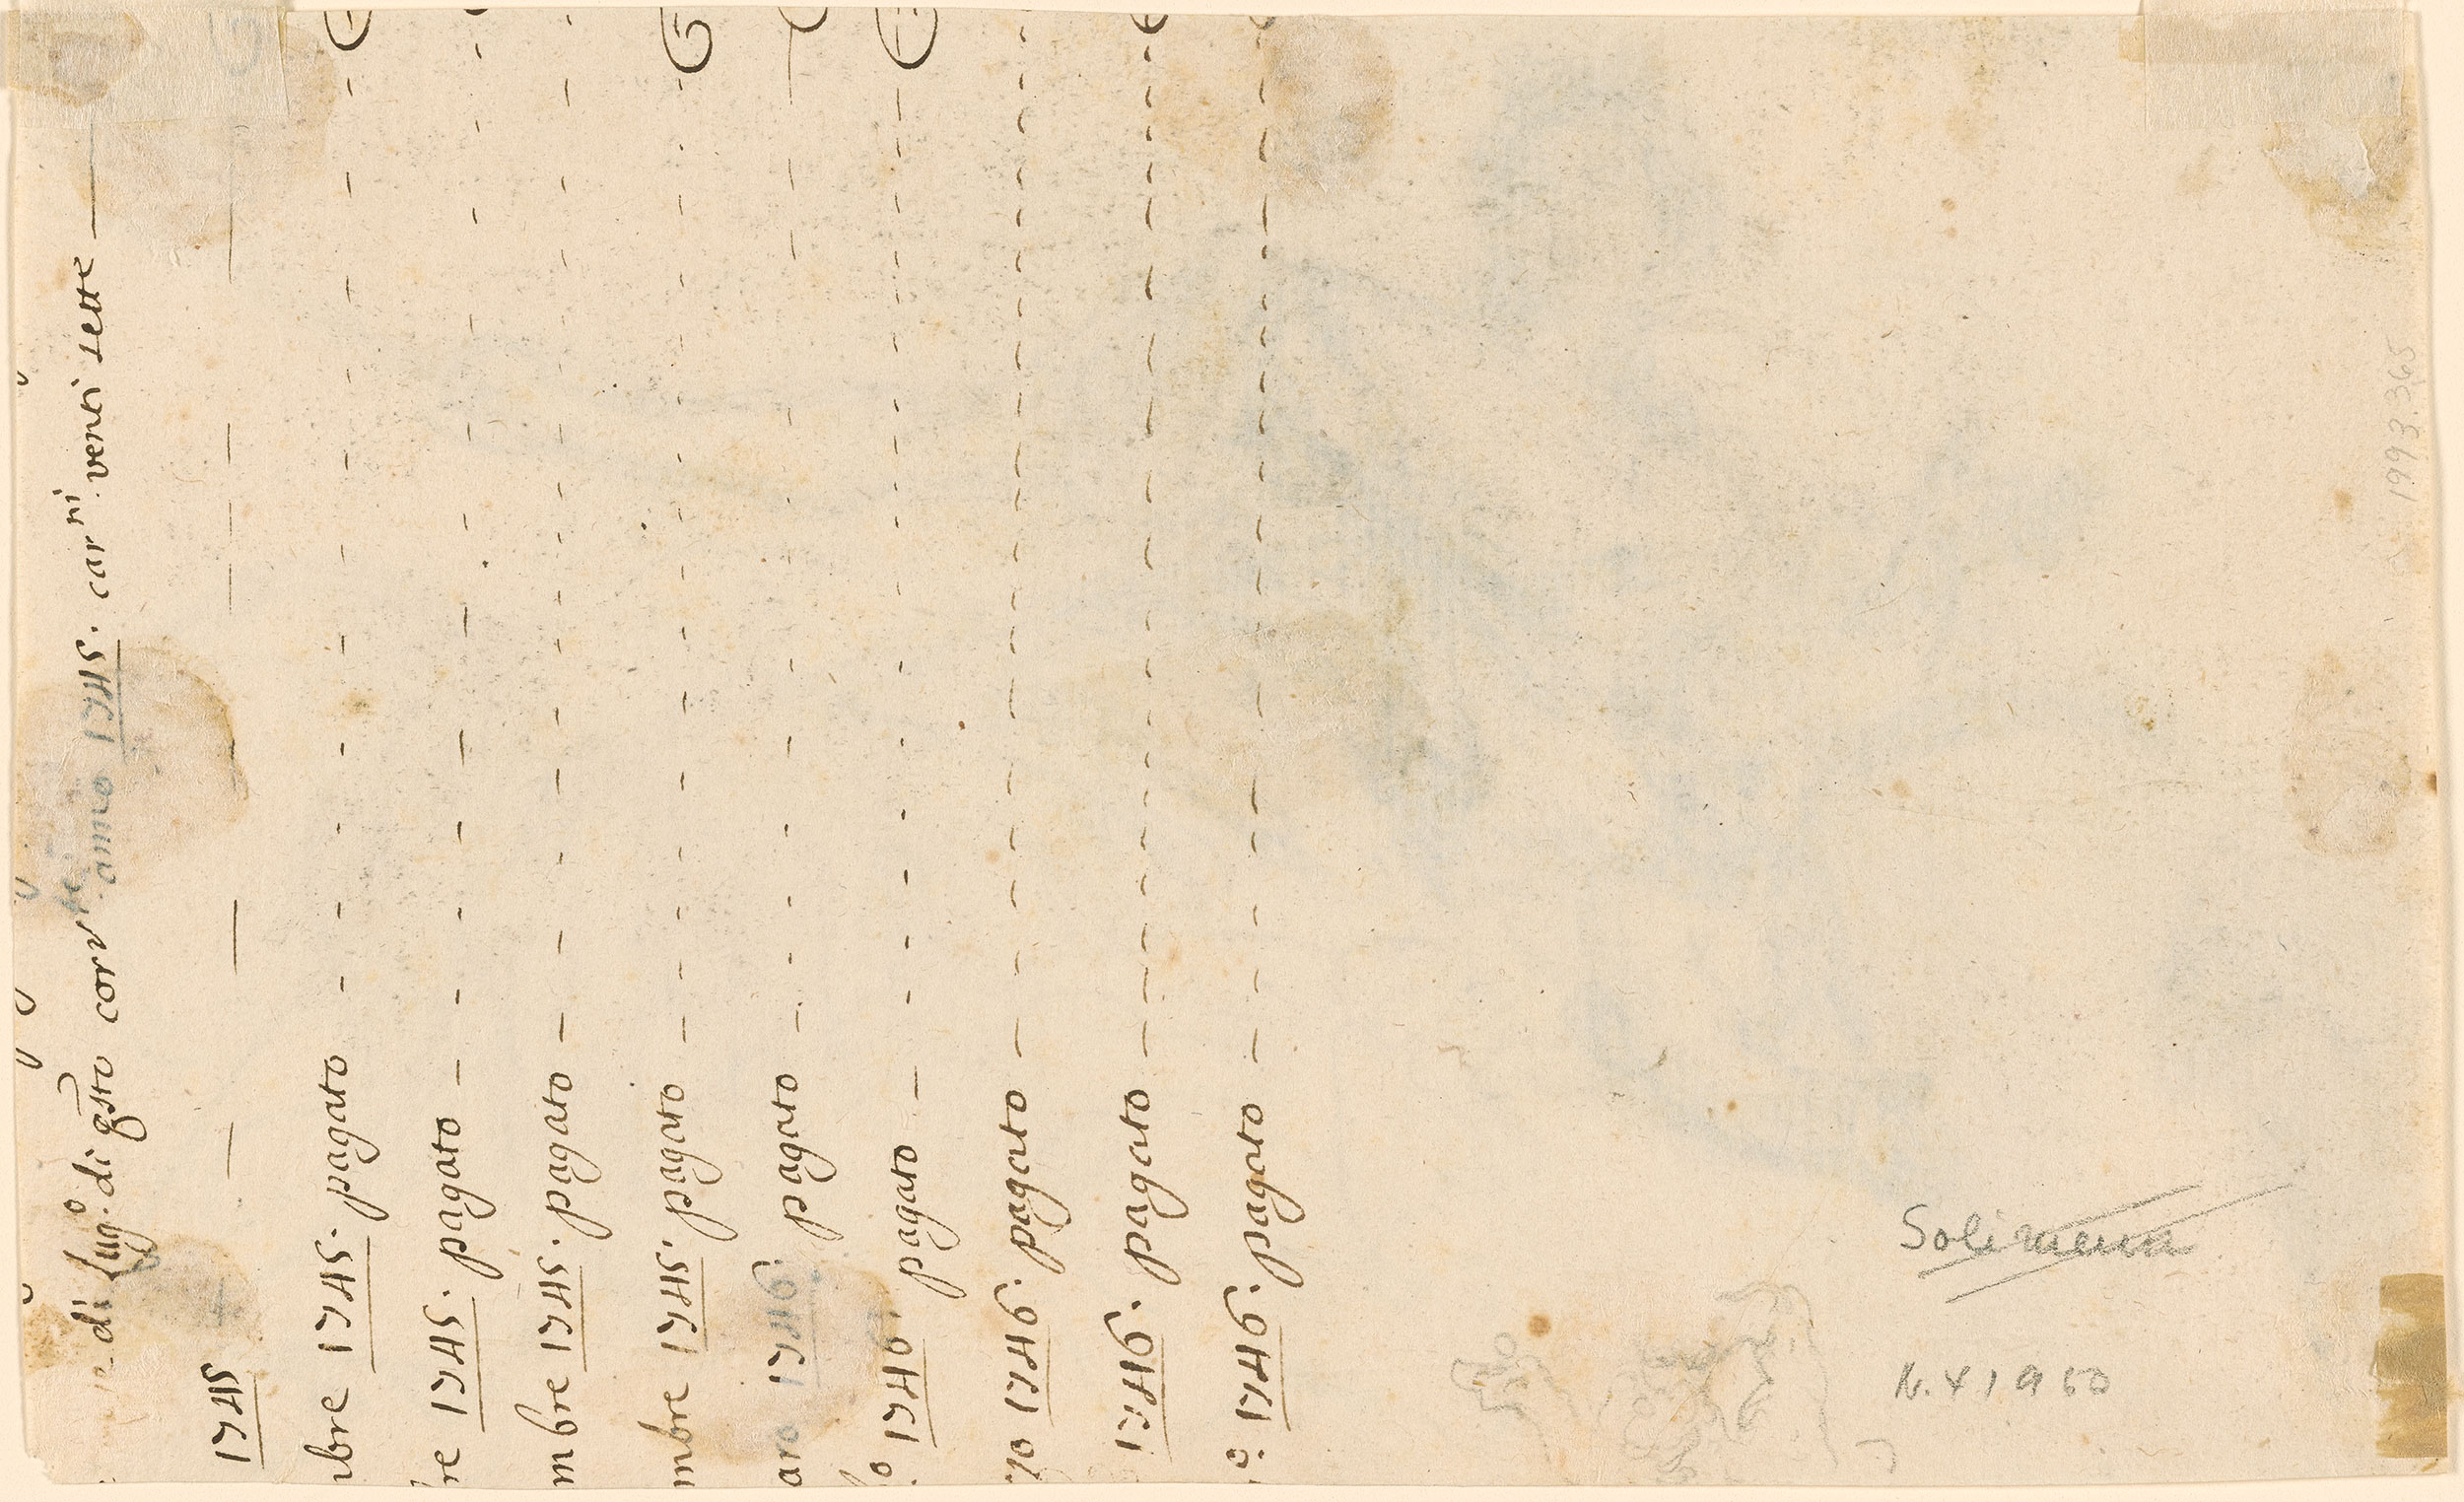 di lug.º di q̃sto corr.te anno 1745. car.ni venti sette
1745
mbre 1745. pagato
re 1745. pagato
mbre 1745. pagato
mbre 1745. pagato
aro 1746. pagato
º 1746. pagato
zo 1746. pagato
1746. pagato
º. 1746. pagato
Solimena
N. 41960
1993.365